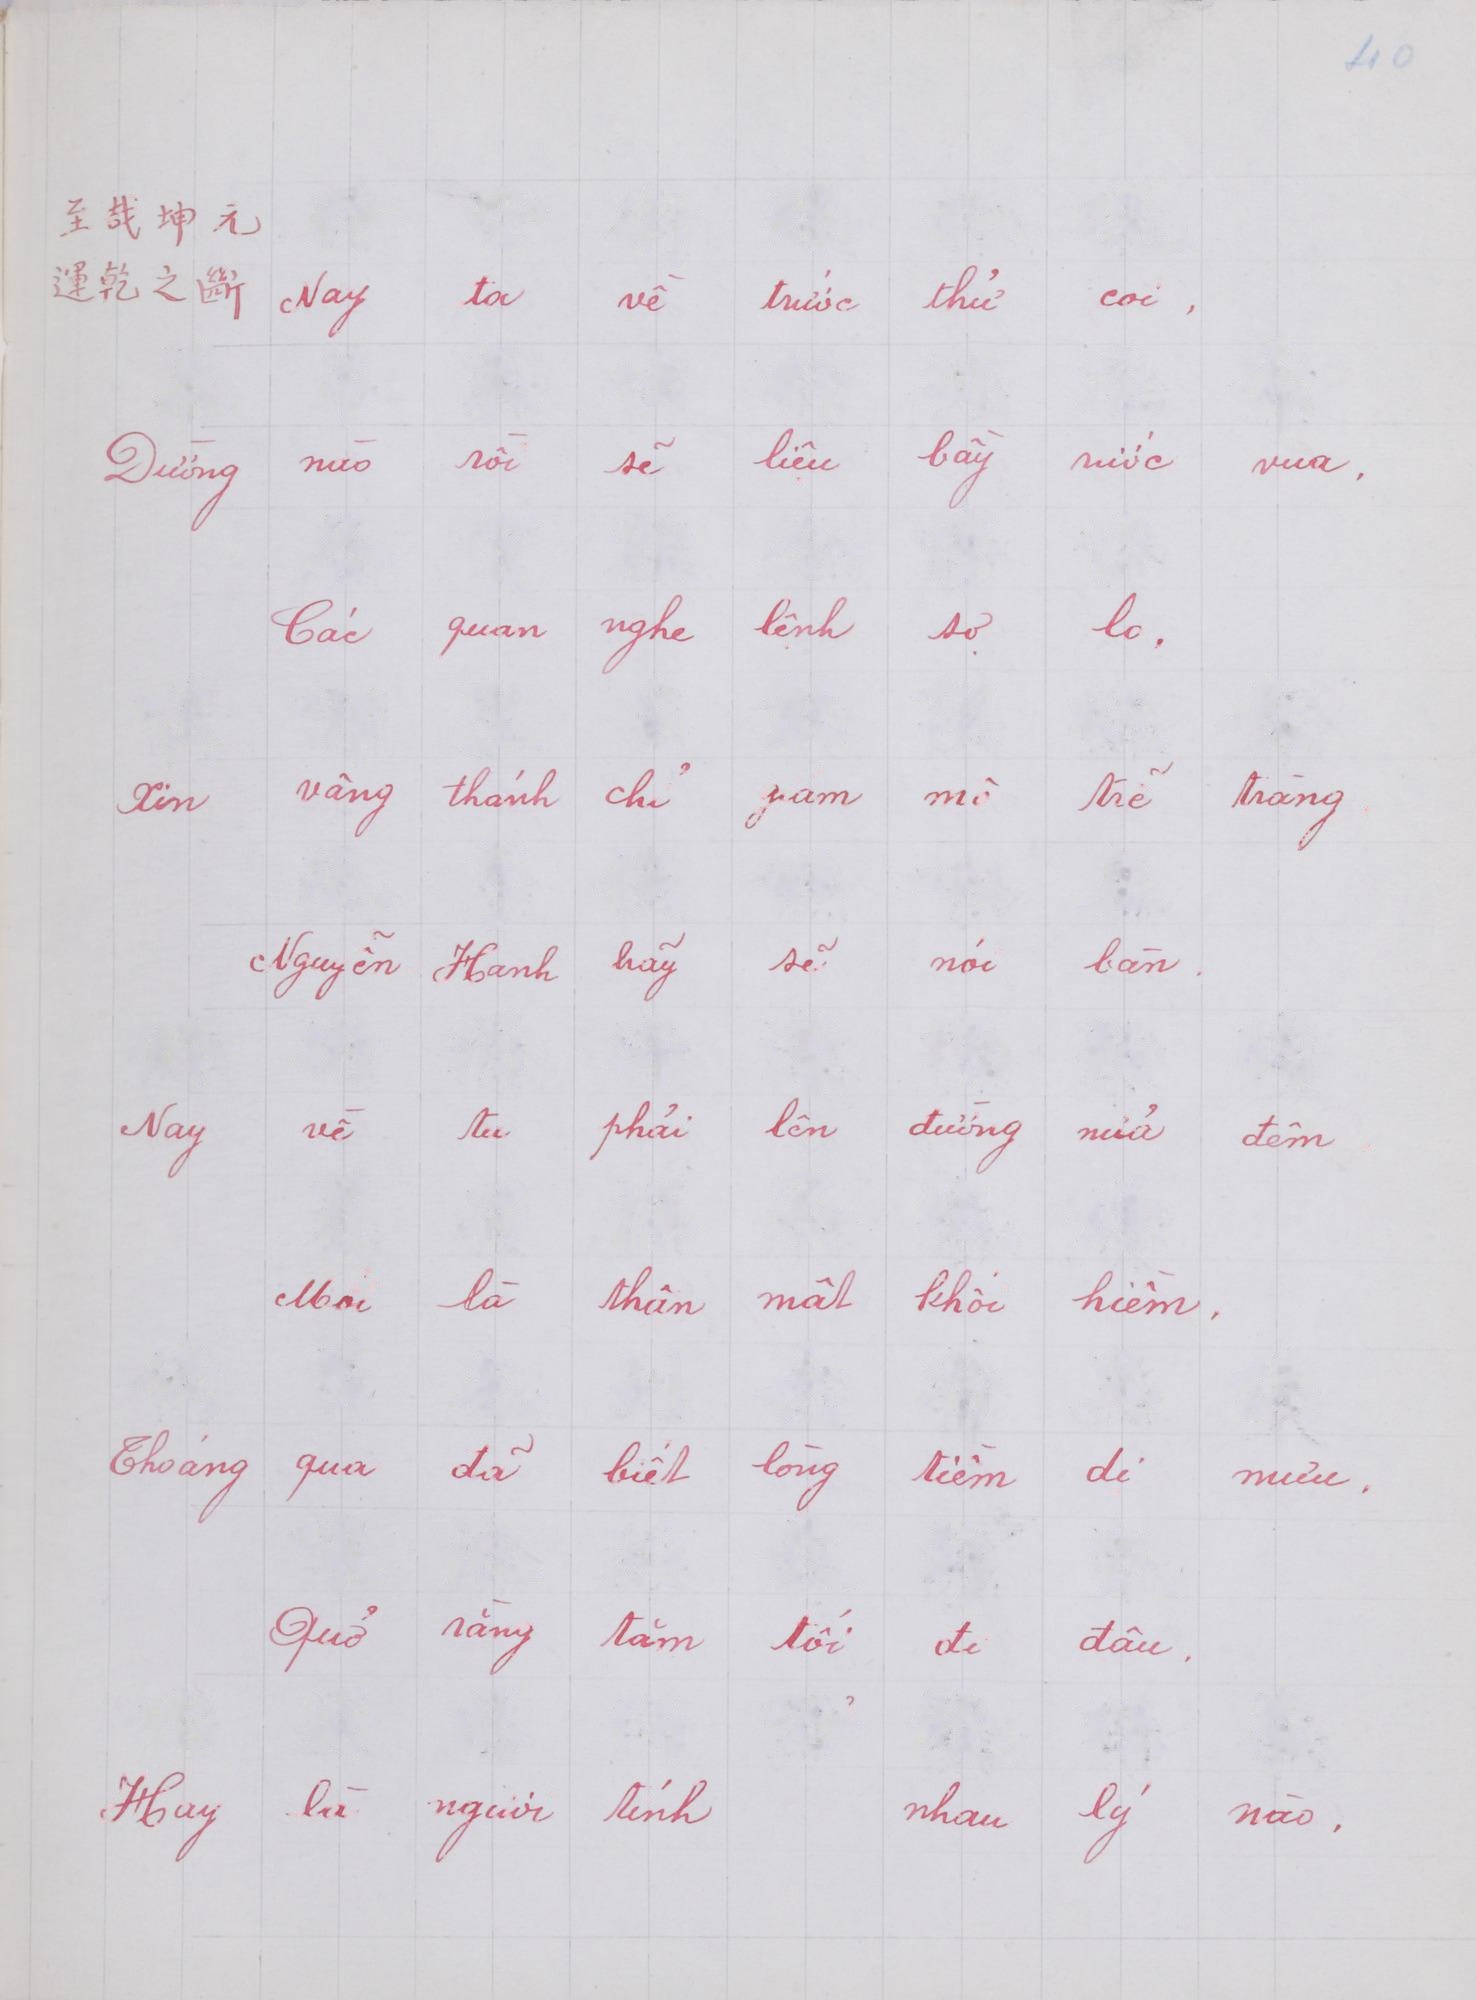 40
至哉坤元
運乾之斷
Nay ta về trước thử coi,
Dường nào rồi sẽ liệu bầy nước vua,
Các quan nghe lệnh sợ lo,
Xin vâng thánh chỉ mô trễ tràng
Nguyễn Hanh hãy sẽ nói bàn.
Nay về tu phải lên đường nửa đêm
Moi là thân mật khỏi hiềm,
Thoáng qua đã biết lòng tiềm di mưu,
Quở rằng tăm tối đi đâu,
Hay là người tính nhau lý nào,